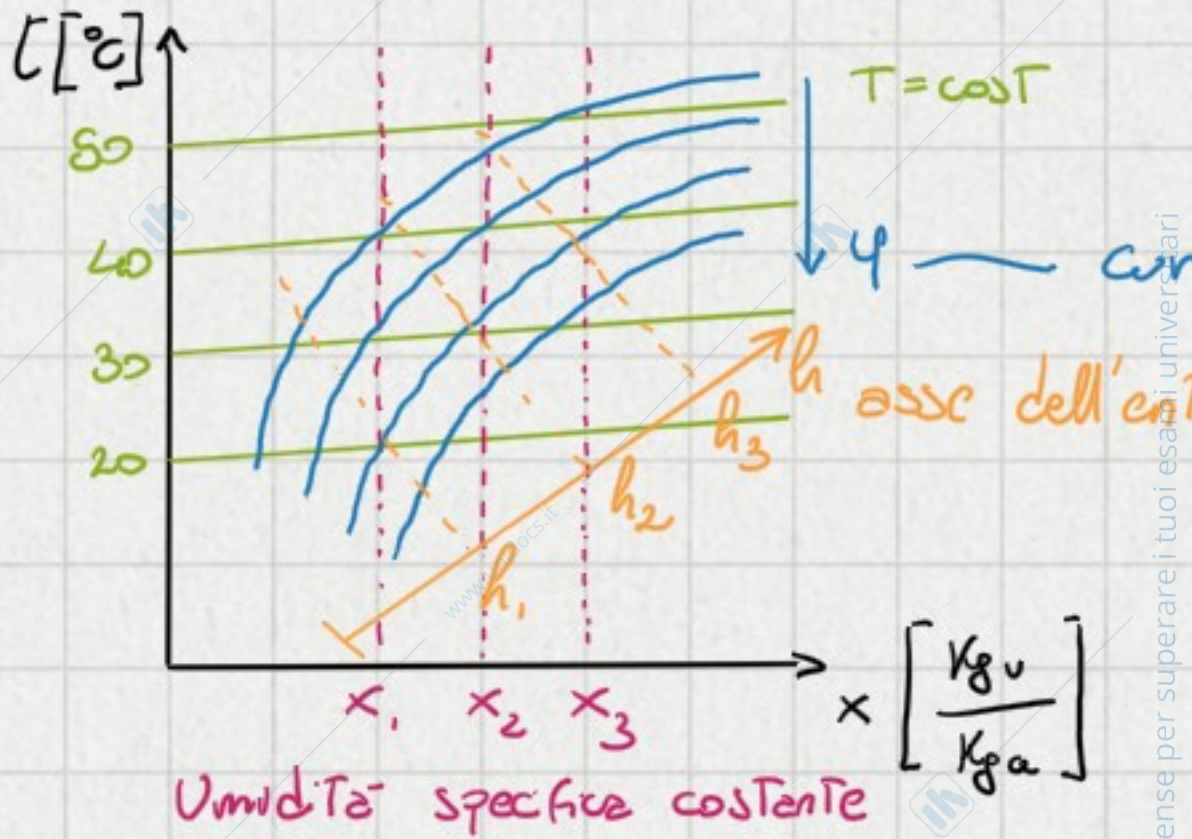 [°C]
T = cosT
50
40
φ
30
h
asse dell'
20
h3
h2
h1
x1 x2 x3
x [Kgv / Kga]
Umidità specifica costante
ense per superare i tuoi esami universitari